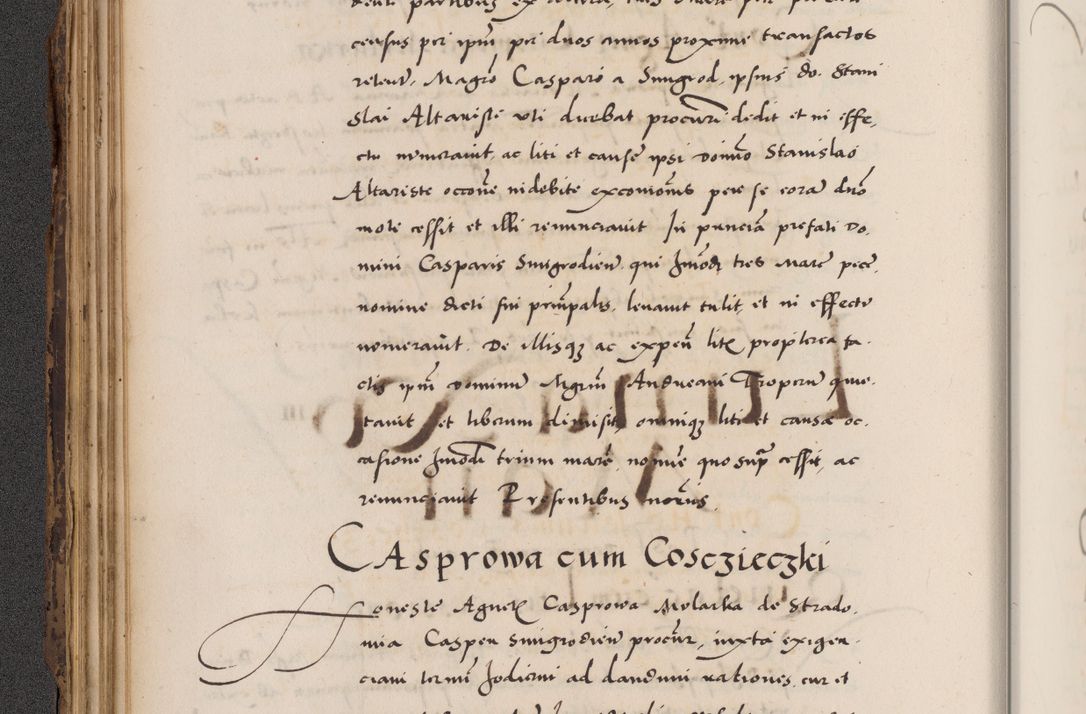 census per ipm per duos annos proxime transactos
retent. Magro Casparo a Smigrod, ipsius do. Stani
slai Altariste uti dicebat procuri dedit et in effe,
ctu numeravit, ac liti et cause ipsi domino Stanislao
Altariste occone indebite excomonis per se coram dno
mote cessit et illi renunciavit In punciam prefati Do,
mini Casparis Smigrodien. qui hmodi tres Marc pecc,
nomine dicti sui principalis, levavit tulit, et in effectu
numeravit. De illisqz ac expen litis propterea fa-
ctis ipm dominum Mgrm Andream Troperum quie-
tavit et liberum dimisit, omniqz liti et causæ oc,
casione hmodi trium marc, nomine quo supra cessit, ac
renunciavit Presentibus
CAsprowa cum Cosczieczki
Honeste Agnetis Casprowa Molarka de Strado,
mia Caspen Smigrodien procur, iuxta exigen-
ciam termini hodierni ad dandum rationes, cur et